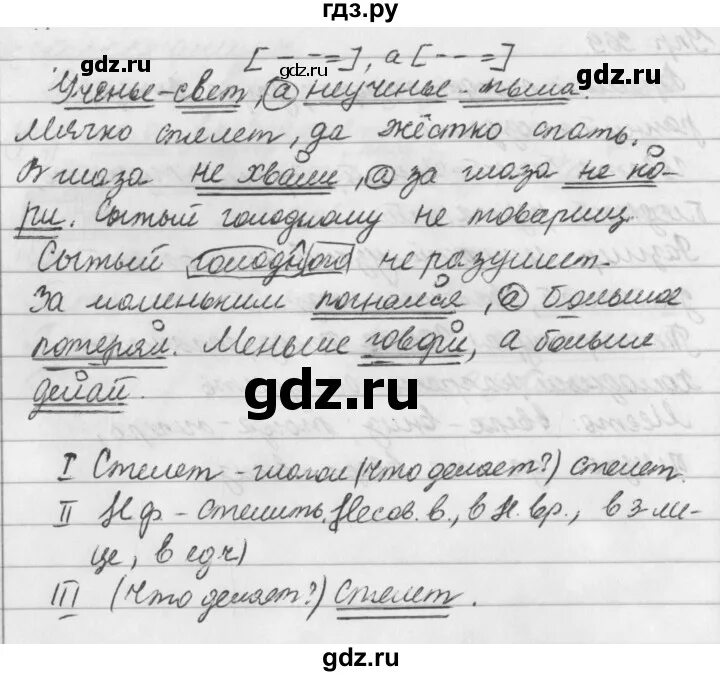 гдз.ру
[ - - - = ], а [ - - - = ]
Ученье - свет, а неученье - тьма.
Мягко стелет, да жёстко спать.
В глаза не хвали, а за глаза не ко-
ри. Сытый голодному не товарищ.
Сытый голодного не разумеет.
За маленьким погнался, а большое
потерял. Меньше говори, а больше
делай.
gdz.ru
gdz.ru
gdz.ru
gdz.ru
gdz.ru
I Стелет - глагол (что делает?) стелет.
II Н.ф - стелить. Несов. в., в н. вр., в 3-ли-
це, в ед.ч)
III (что делает?) Стелет.
gdz.ru
gdz.ru
gdz.ru